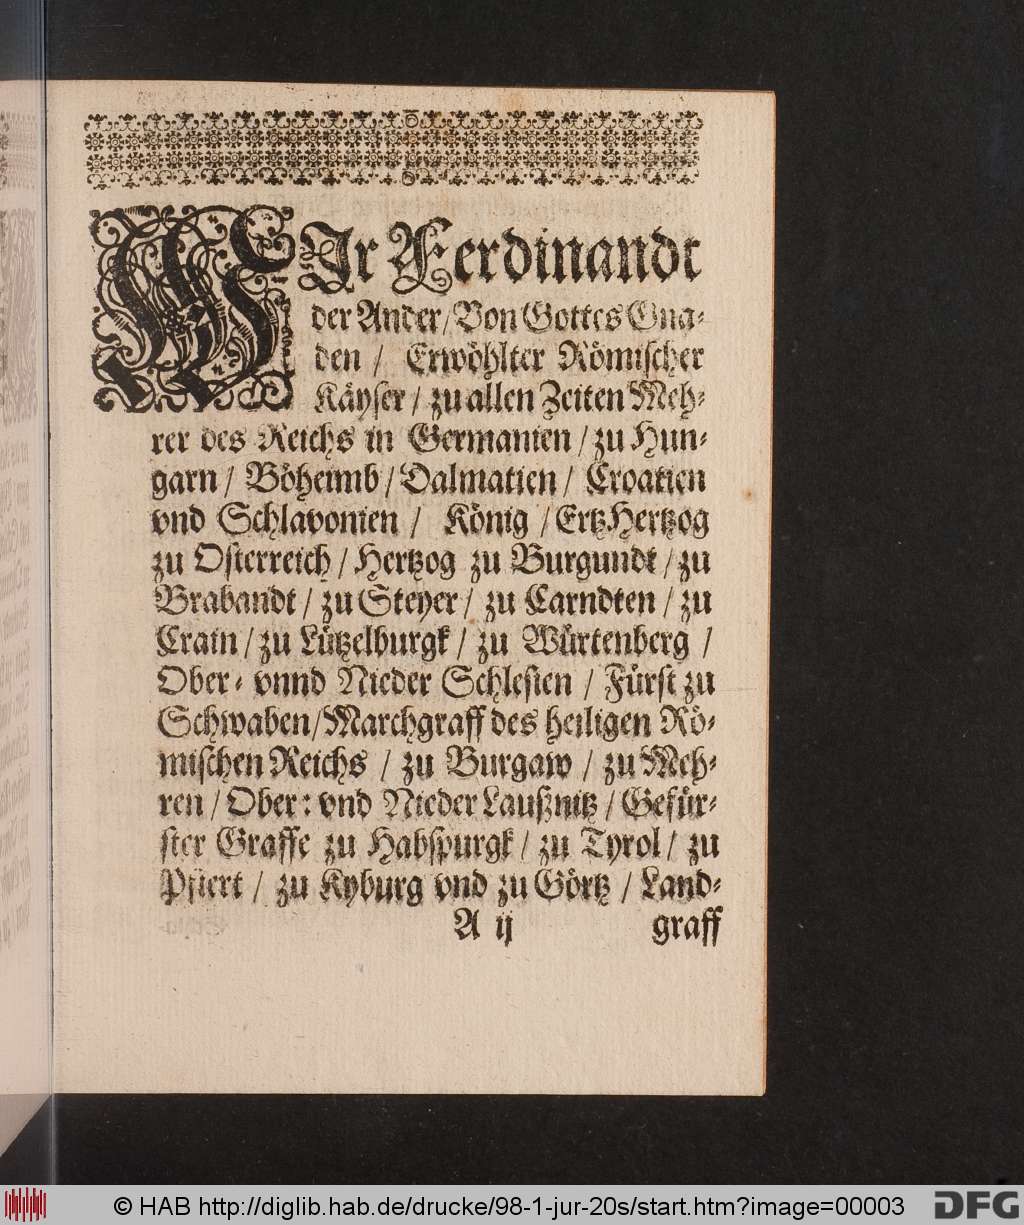 WIr Ferdinandt
der Ander / Von Gottes Gna-
den / Erwöhlter Römischer
Käyser / zu allen Zeiten Meh-
rer des Reichs in Germanien / zu Hun-
garn / Böheimb / Dalmatien / Croatien
vnd Schlavonien / König / ErtzHertzog
zu Osterreich / Hertzog zu Burgundt / zu
Brabandt / zu Steyer / zu Carndten / zu
Crain / zu Lützelburgk / zu Würtenberg /
Ober- vnnd Nieder Schlesien / Fürst zu
Schwaben / Marchgraff des heiligen Rö-
mischen Reichs / zu Burgaw / zu Meh-
ren / Ober: vnd Nieder Laußnitz / Gefür-
ster Graffe zu Habspurgk / zu Tyrol / zu
Pfiert / zu Kyburg vnd zu Görtz / Land-
A ij graff
© HAB http://diglib.hab.de/drucke/98-1-jur-20s/start.htm?image=00003 DFG